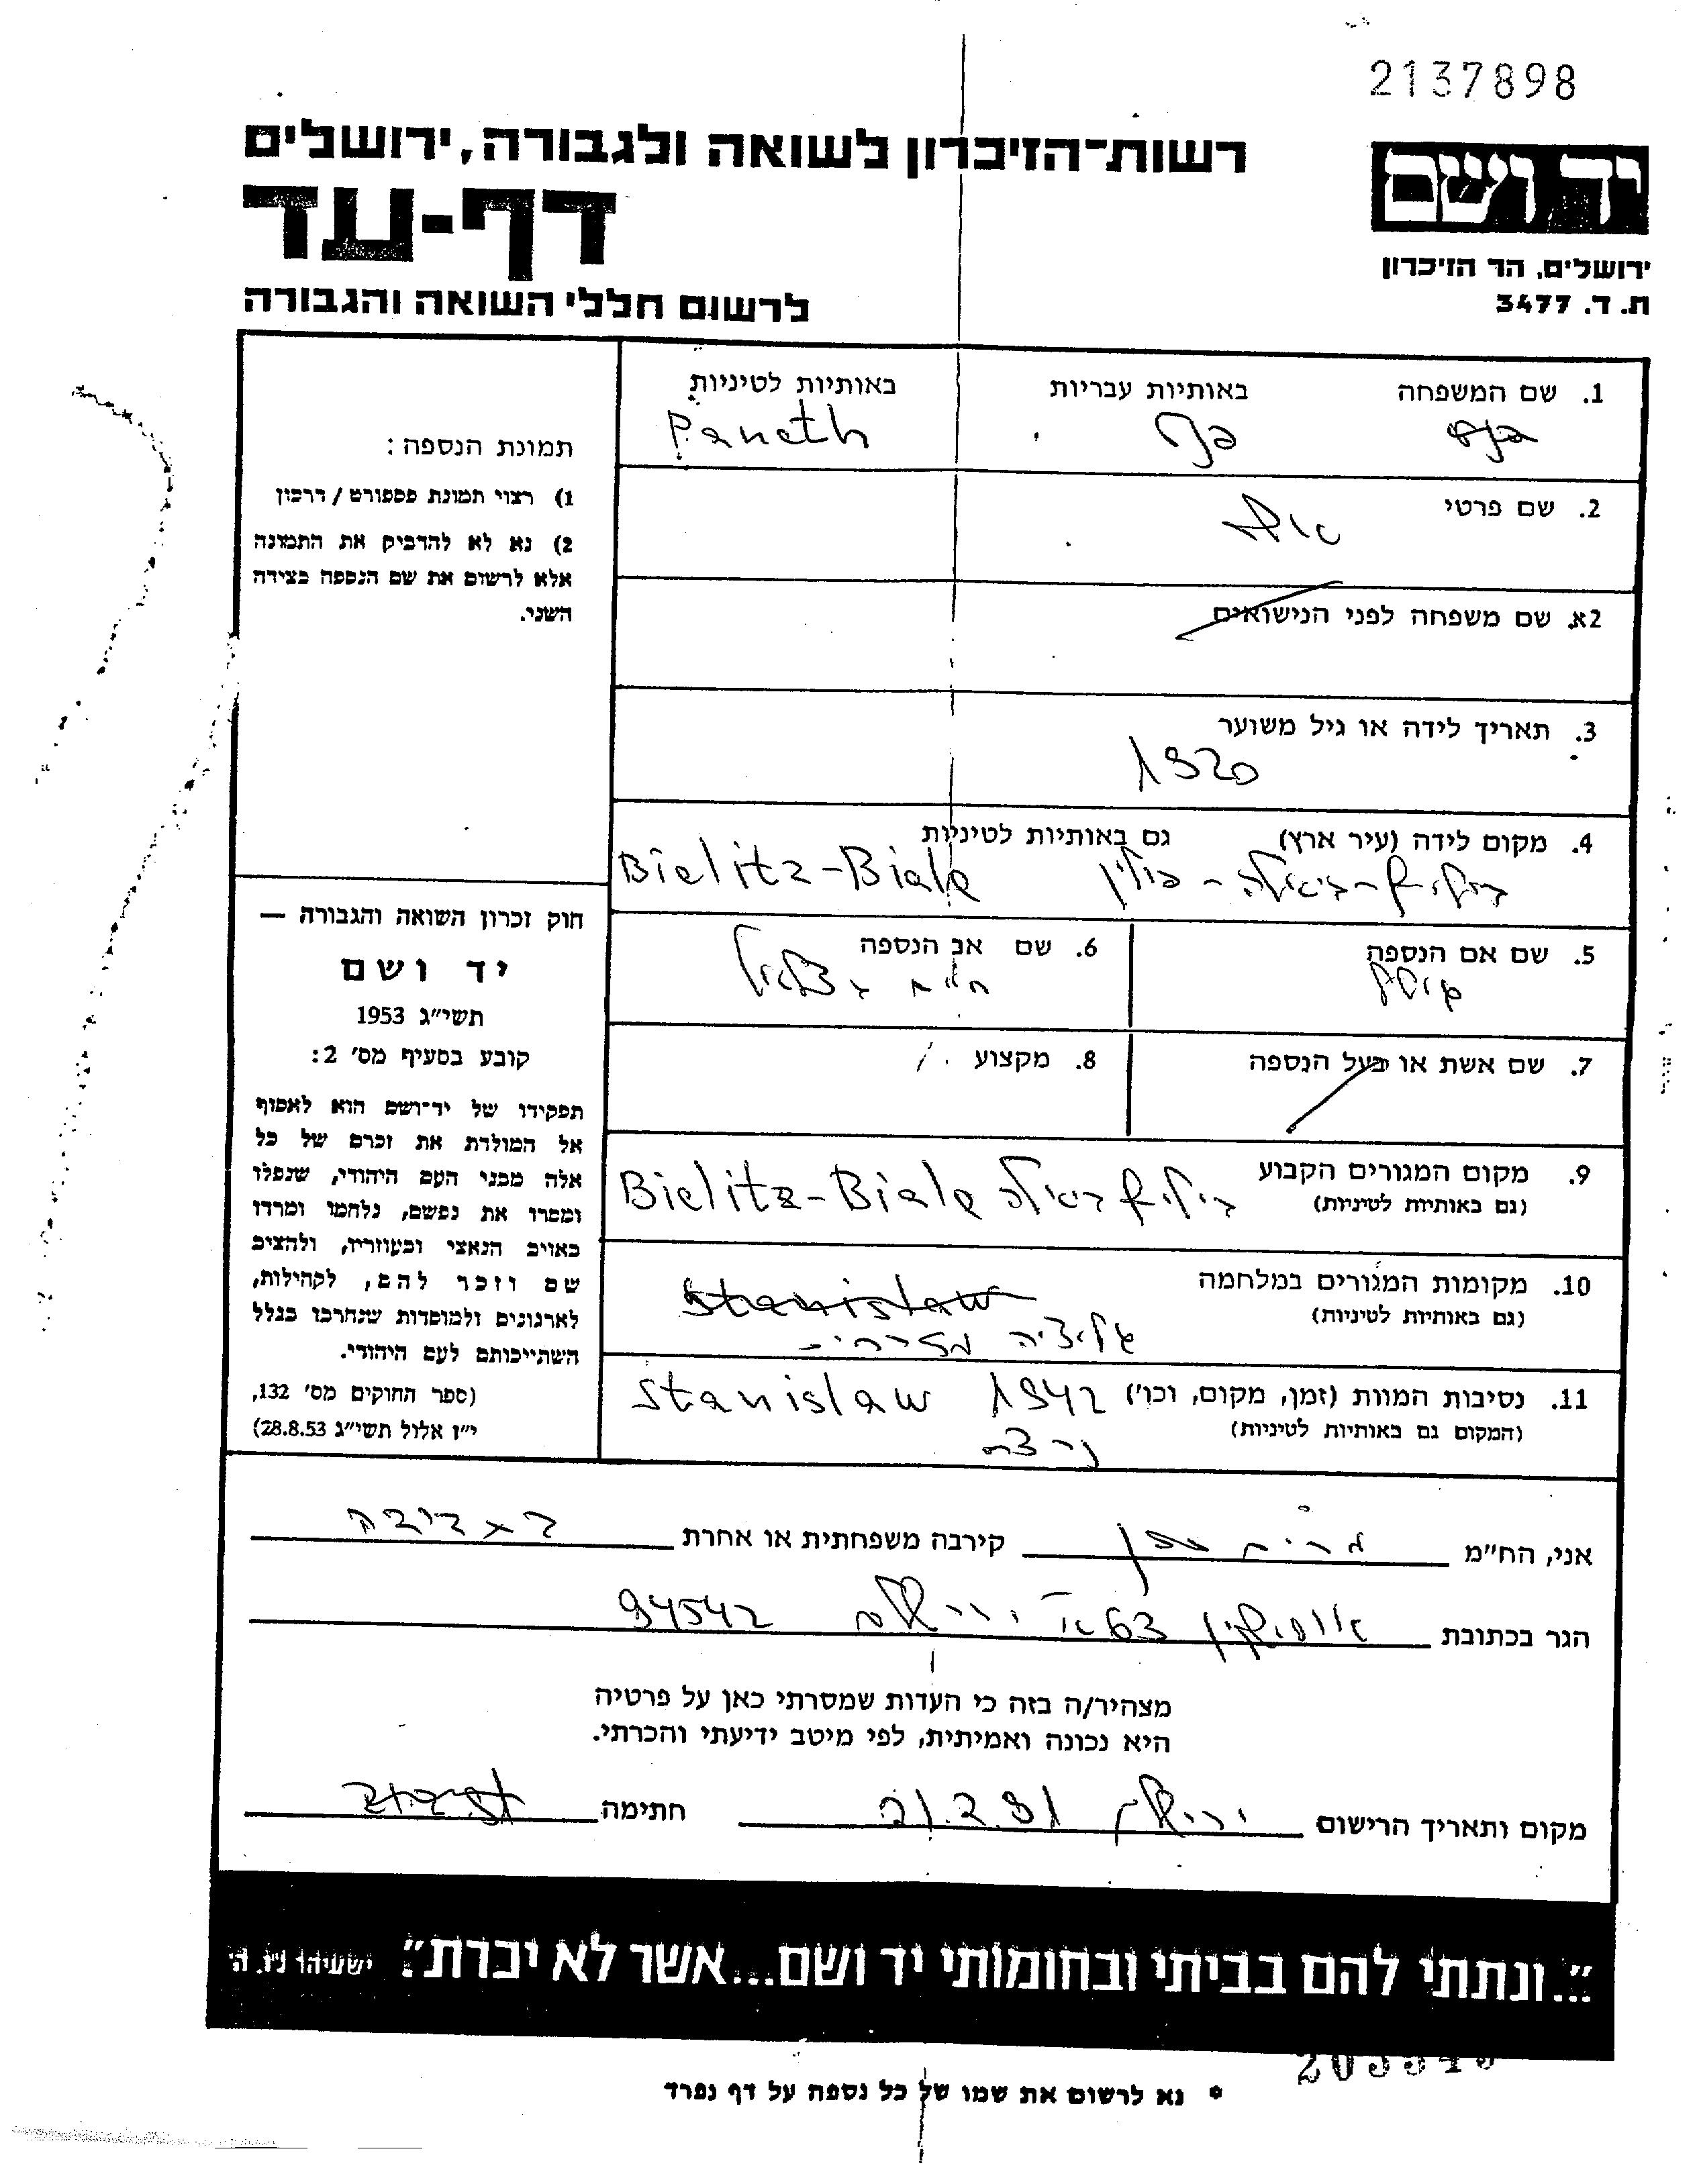 2137898
יד ושם
ירושלים, הר הזיכרון
ת. ד. 3477
רשות־הזיכרון לשואה ולגבורה, ירושלים
דף-עד
לרשום חללי השואה והגבורה
1. שם המשפחה באותיות עבריות באותיות לטיניות
פנט Paneth
2. שם פרטי
2א. שם משפחה לפני הנישואים
3. תאריך לידה או גיל משוער
1920
4. מקום לידה (עיר ארץ) גם באותיות לטיניות
בילינץ-ביאלה - פולין Bielitz-Biala
5. שם אם הנספה
6. שם אב הנספה
חיים בצלאל
7. שם אשת או בעל הנספה
8. מקצוע
9. מקום המגורים הקבוע
(גם באותיות לטיניות)
ביליץ ביאלה Bielitz-Biala
10. מקומות המגורים במלחמה
(גם באותיות לטיניות)
Stanislaw
גליציה מזרחית
11. נסיבות המוות (זמן, מקום, וכו') 1942 Stanislaw
(המקום גם באותיות לטיניות)
נרצח
תמונת הנספה:
1) רצוי תמונת פספורט / דרכון
2) נא לא להדביק את התמונה
אלא לרשום את שם הנספה בצידה
השני.
חוק זכרון השואה והגבורה —
יד ושם
תשי"ג 1953
קובע בסעיף מס' 2:
תפקידו של יד־ושם הוא לאסוף
אל המולדת את זכרם של כל
אלה מבני העם היהודי, שנפלו
ומסרו את נפשם, נלחמו ומרדו
באויב הנאצי ובעוזריו, ולהציב
שם וזכר להם, לקהילות,
לארגונים ולמוסדות שנחרבו בגלל
השתייכותם לעם היהודי.
(ספר החוקים מס' 132,
י"ז אלול תשי"ג 28.8.53)
אני, הח"מ מרים קירבה משפחתית או אחרת בת דודה
הגר בכתובת אוסישקין 63 א' ירושלים 94542
מצהיר/ה בזה כי העדות שמסרתי כאן על פרטיה
היא נכונה ואמיתית, לפי מיטב ידיעתי והכרתי.
מקום ותאריך הרישום ירושלים 21.2.91 חתימה
"...ונתתי להם בביתי ובחומותי יד ושם...אשר לא יכרת". ישעיהו נ"ו. ה'
* נא לרשום את שמו של כל נספה על דף נפרד